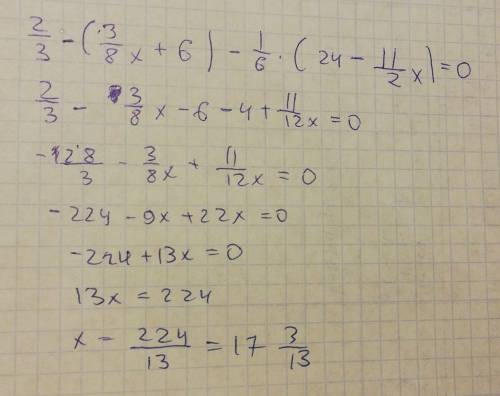 2/3 - (3/8 x + 6) - 1/6 · (24 - 11/2 x) = 0
2/3 - 3/8 x - 6 - 4 + 11/12 x = 0
- 28/3 - 3/8 x + 11/12 x = 0
- 224 - 9x + 22x = 0
- 224 + 13x = 0
13x = 224
x - 224/13 = 17 3/13